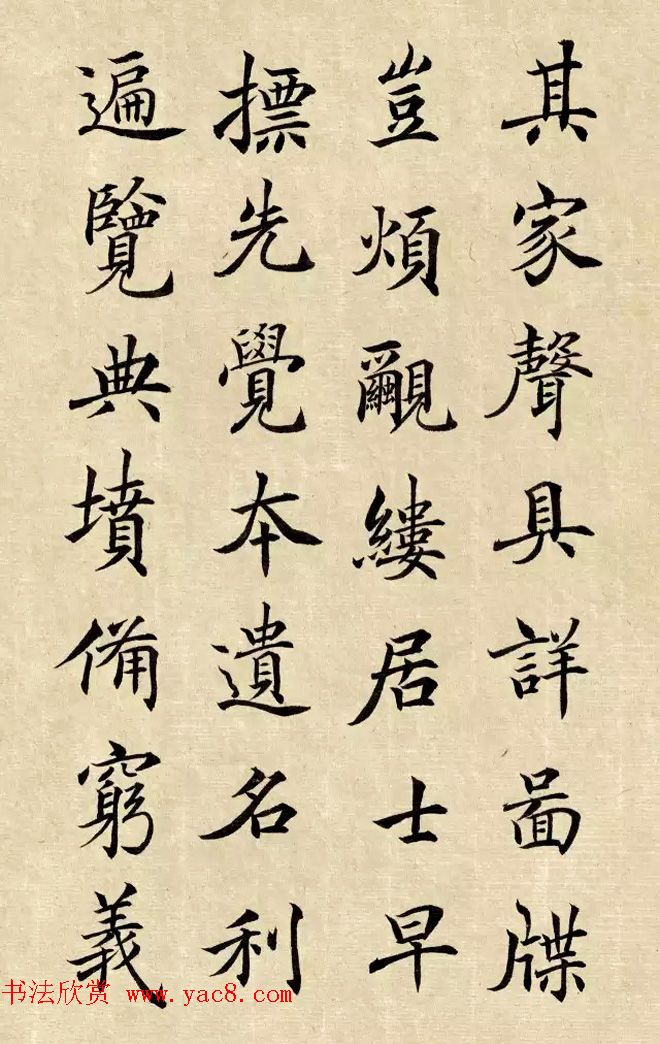 其家聲具詳啚牒
豈煩覼縷居士早
摽先覺本遺名利
遍覽典墳備窮義
书法欣赏 www.yac8.com